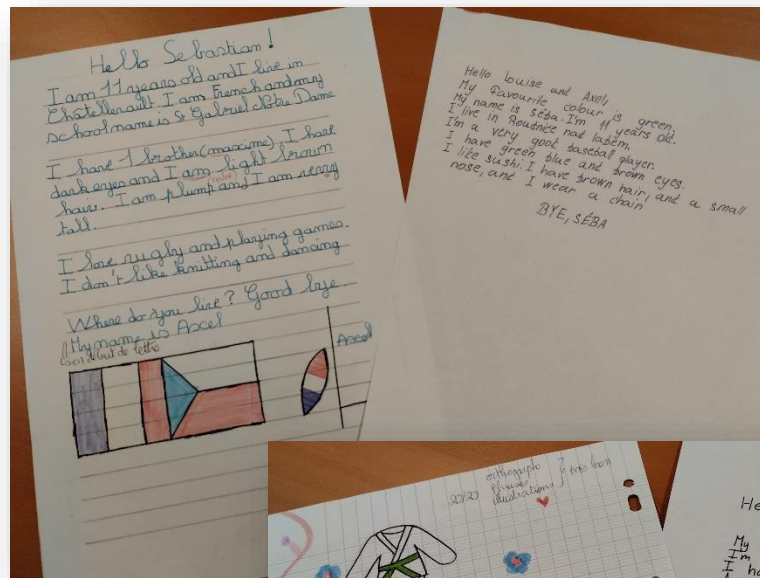 Hello Sebastian!
I am 11 years old and I live in
Châtellerault. I am French and my
school name is St Gabriel Notre Dame
I have 1 brother (maxime). I have
dark eyes and I am light brown
hair. I am plump and I am very
tall.
I love rugby and playing games.
I don't like knitting and dancing
Where do you live? Good bye
My name is Axcel
en début de lettre
Axcel
Hello Louise and Axel,
My favourite colour is green.
My name is séba. I'm 11 years old.
I live in Roudnce nat labem.
I'm a very goot baseball player.
I have green blue and brown eyes.
I like sushi. I have brown hair, and a small
nose, and I wear a chain
BYE, SÉBA
orthographe
20/20 phrases très bon
illustrations
He
My
I'm
I ha